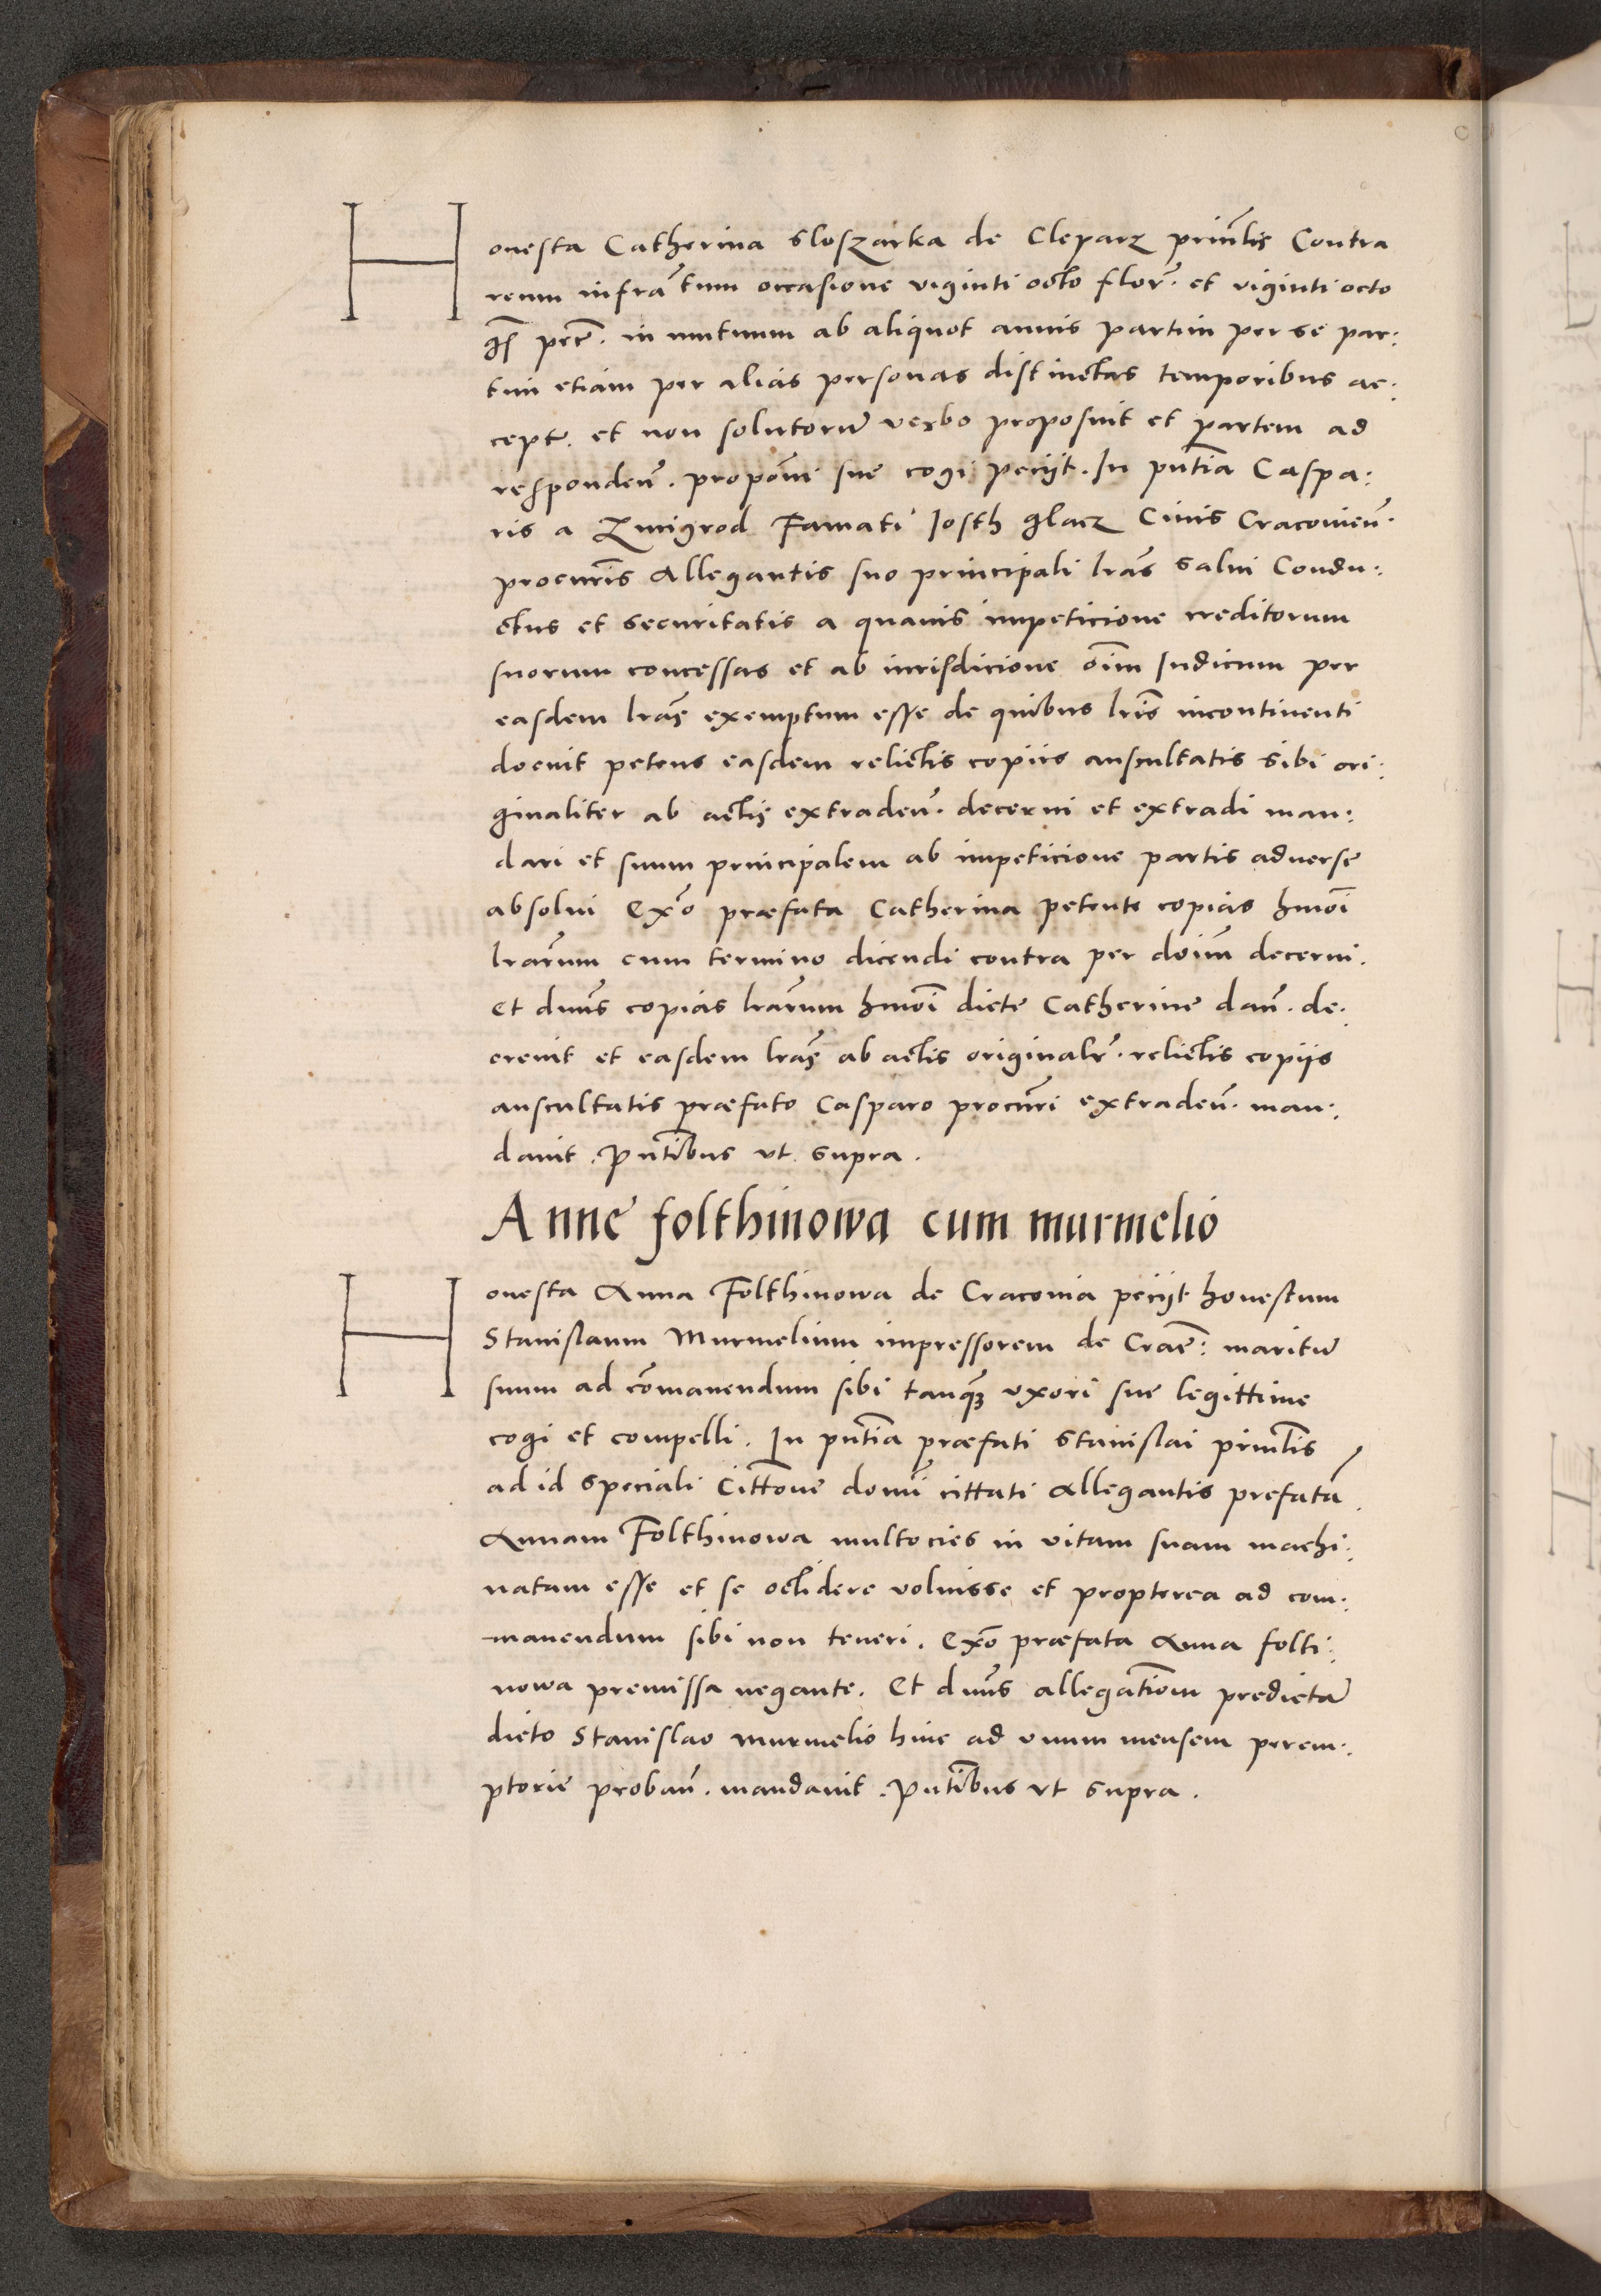 Honesta Catherina Sloszarka de Cleparz prin̄lis Contra
reum infra᷃tum occasione viginti octo flor᷃. et viginti octo
gs᷃ pec᷃. in mutuum ab aliquot annis partim per se par:
tim etiam per alias personas distinctas temporibus ac:
cept᷃. et non solutorū verbo proposuit et partem ad
responden᷃. propōni sue cogi peciit. In pn̄tia Caspa:
ris a Zmigrod Famati Iosth glacz Civis Cracovien᷃.
procur̄is Allegantis suo principali lr̄as salvi Condu:
ctus et securitatis a quavis impeticione creditorum
suorum concessas et ab iurisdicione oīm Iudicum per
easdem lr̄as exemptum esse de quibus lr̄is incontinenti
docuit petens easdem relictis copiis auscultatis sibi ori:
ginaliter ab actis extraden᷃. decerni et extradi man:
dari et suum principalem ab impeticione partis adverse
absolvi Ex᷃o præfata Catherina petente copias hmōi
lr̄arum cum termino dicendi contra per doīm decerni.
Et dnn̄s copias lr̄arum hmōi dicte Catherine dan᷃. de:
crevit et easdem lr̄as ab actis originalr᷃. relictis copiis
auscultatis præfato Casparo procur̄i extraden᷃. man:
davit. Pn̄tibus vt supra.
Anne folthinowa cum murmelio
Honesta Anna Folthinowa de Cracovia peciit honestum
Stanislaum Murmelium impressorem de Crac᷃: maritū
suum ad cōmanendum sibi tanqȝ vxori sue legittime
cogi et compelli. In pn̄tia præfati Stanislai prin̄lis
ad id speciali Citt᷃one domi cittati Allegantis prefatā
Annam Folthinowa multocies in vitam suam machi:
natam esse et se occidere voluisse et propterea ad com:
manendum sibi non teneri. Ex᷃o præfata Anna folti:
nowa premissa negante. Et dnn̄s allegat᷃iom predictā
dicto Stanislao murmelio hinc ad vnum mensem perem:
ptorie proban᷃. mandavit. Pn̄tibus vt supra.